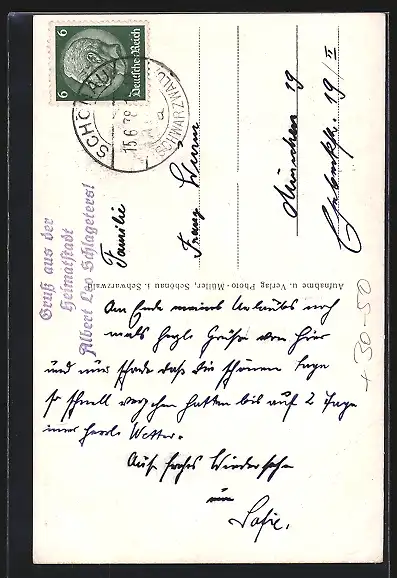 6 6
Deutsches Reich
SCHÖNAU
15.6.38
a
SCHWARZWALD
Gruß aus der
Heimatstadt
Albert Leo Schlageters!
Familie
Franz Wurm
München 19
19/II
Aufnahme u. Verlag Photo-Müller, Schönau i. Schwarzwald
Am Ende meines Urlaubs noch
mals herzl. Grüße von hier
und nur schade daß die schönen Tage
so schnell vergehen hatten bis auf 2 Tage
immer herrl. Wetter.
Auf frohes Wiedersehn
Sofie.
+ 30-50